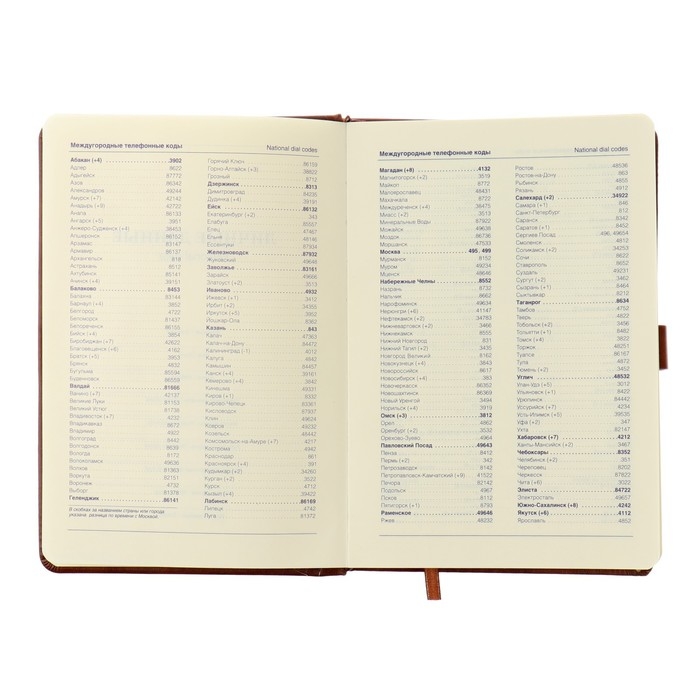 Междугородные телефонные коды National dial codes
Абакан (+4) 3902
Адлер 8622
Адыгейск 87772
Азов 86342
Александров 49244
Амурск (+7) 42142
Анадырь (+9) 42722
Анапа 86133
Ангарск (+5) 3951
Анжеро-Судженск (+4) 38453
Апшеронск 86152
Арзамас 83147
Армавир 86137
Архангельск 818
Астрахань 8512
Ахтубинск 85141
Ачинск (+4) 39151
Балаково 8453
Балахна 83144
Барнаул (+4) 3852
Белгород 4722
Белоречинск 86155
Березники 3424
Бийск (+4) 3854
Биробиджан (+7) 42622
Благовещенск (+6) 4162
Братск (+5) 3953
Брянск 4832
Бугульма 85594
Буденновск 86559
Валдай 81666
Ванино (+7) 42137
Великие Луки 81153
Великий Устюг 81738
Владивосток (+7) 423
Владикавказ 8672
Владимир 4922
Волгоград 8442
Волгодонск 8639
Вологда 8172
Волоколамск 49636
Волхов 81363
Воркута 82151
Воронеж 4732
Выборг 81378
Геленджик 86141
В скобках за названием страны или города
указана разница по времени с Москвой
Горячий Ключ 86159
Горно-Алтайск (+3) 38822
Грозный 8712
Дзержинск 8313
Димитровград 84235
Дудинка (+4) 39191
Ейск 86132
Екатеринбург (+2) 343
Елабуга 85557
Елец 47467
Ельня 48146
Ессентуки 87934
Железноводск 87932
Жуковский 49648
Заволжье 83161
Зарайск 49666
Златоуст (+2) 3513
Иваново 4932
Ижевск (+1) 3412
Ирбит (+2) 34355
Иркутск (+5) 3952
Йошкар-Ола 8362
Казань 843
Калач 47363
Калач-на-Дону 84472
Калининград (-1) 4012
Калуга 4842
Камышин 84457
Канск (+4) 39161
Кемерово (+4) 3842
Кинешма 49331
Киров (+1) 8332
Кирово-Чепецк 83361
Кисловодск 87937
Клин 49624
Ковров 49232
Козельск 48442
Комсомольск-на-Амуре (+7) 4217
Кострома 4942
Краснодар 861
Красноярск (+4) 391
Кудымкар (+2) 34260
Курган (+2) 3522
Курск 4712
Кызыл (+4) 39422
Лабинск 86169
Липецк 4742
Луга 81372
Междугородные телефонные коды National dial codes
Магадан (+8) 4132
Магнитогорск (+2) 3519
Майкоп 8772
Малоярославец 48431
Махачкала 8722
Междуреченск (+4) 38475
Миасс (+2) 3513
Минеральные Воды 87922
Можайск 49638
Моздок 86736
Моршанск 47533
Москва 495, 499
Мурманск 8152
Муром 49234
Мценск 48646
Набережные Челны 8552
Назрань 8732
Нальчик 8662
Нарофоминск 49634
Нерюнгри (+6) 41147
Нефтекамск (+2) 34783
Нижневартовск (+2) 3466
Нижнекамск 8555
Нижний Новгород 831
Нижний Тагил (+2) 3435
Новгород Великий 8162
Новокузнецк (+4) 3843
Новороссийск 8617
Новосибирск (+3) 383
Новочеркасск 86352
Новошахтинск 86369
Новый Уренгой 3494
Норильск (+4) 3919
Омск (+3) 3812
Орел 4862
Оренбург (+2) 3532
Орехово-Зуево 4964
Павловский Посад 49643
Пенза 8412
Пермь (+2) 342
Петрозаводск 8142
Петропавловск-Камчатский (+9) 41522
Печора 82142
Подольск 4967
Псков 8112
Пятигорск (+1) 8793
Раменское 49646
Ржев 48232
Ростов 48536
Ростов-на-Дону 863
Рыбинск 4855
Рязань 4912
Салехард (+2) 34922
Самара (+1) 846
Санкт-Петербург 812
Саранск 8342
Саратов (+1) 8452
Сергиев Посад 496, 49654
Смоленск 4812
Соликамск (+2) 34253
Сочи 8622
Ставрополь 8652
Суздаль 49231
Сургут (+2) 3462
Сызрань (+1) 8464
Сыктывкар 8212
Таганрог 8634
Тамбов 4752
Тверь 4822
Тобольск (+2) 3456
Тольятти (+1) 8482
Томск (+4) 3822
Торжок 48251
Туапсе 86167
Тула 4872
Тюмень (+2) 3452
Углич 48532
Улан-Удэ (+5) 3012
Ульяновск (+1) 8422
Урюпинск 84442
Уссурийск (+7) 4234
Усть-Илимск (+5) 39535
Уфа (+2) 347
Ухта 82147
Хабаровск (+7) 4212
Ханты-Мансийск (+2) 3467
Чебоксары 8352
Челябинск (+2) 351
Череповец 8202
Черкесск 87822
Чита (+6) 3022
Элиста 84722
Электросталь 49657
Южно-Сахалинск (+8) 4242
Якутск (+6) 4112
Ярославль 4852